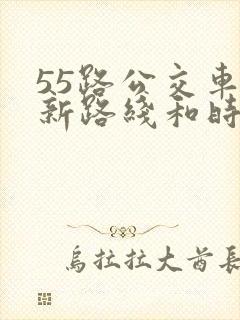 55路公交車
新路綫和時
烏拉拉大酋長